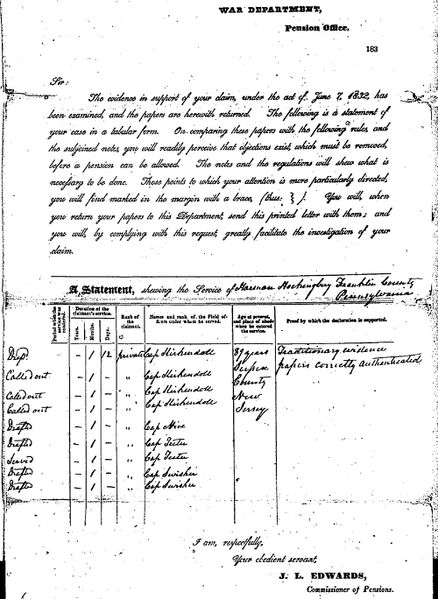 WAR DEPARTMENT,
Pension Office.
183
Sir:
The evidence in support of your claim, under the act of June 7, 1832, has
been examined, and the papers are herewith returned. The following is a statement of
your case in a tabular form. On comparing these papers with the following rules, and
the subjoined notes, you will readily perceive that objections exist, which must be removed,
before a pension can be allowed. The notes and the regulations will shew what is
necessary to be done. Those points to which your attention is more particularly directed,
you will find marked in the margin with a brace, (thus: } ). You will, when
you return your papers to this Department, send this printed letter with them; and
you will, by complying with this request, greatly facilitate the investigation of your
claim.
A Statement, shewing the Service of Franklin County
Pennsylvania
Period when the service was rendered.
Duration of the claimant's service.
Years. Months. Days.
Rank of the claimant.
Names and rank of the Field officers under whom he served.
Age at present, and place of abode when he entered the service.
Proof by which the declaration is supported.
- 1 12 private Cap 89 years Traditionary evidence
Called out - 1 " Cap Sussex papers correctly authenticated
Called out - 1 " Cap County
Called out - 1 " Cap New
Jersey
Drafted - 1 " Cap
Drafted - 1 " Cap Teeter
Served - 1 " Cap Teeter
Drafted - 1 " Cap
Drafted - 1 " Cap
I am, respectfully,
Your obedient servant,
J. L. EDWARDS,
Commissioner of Pensions.